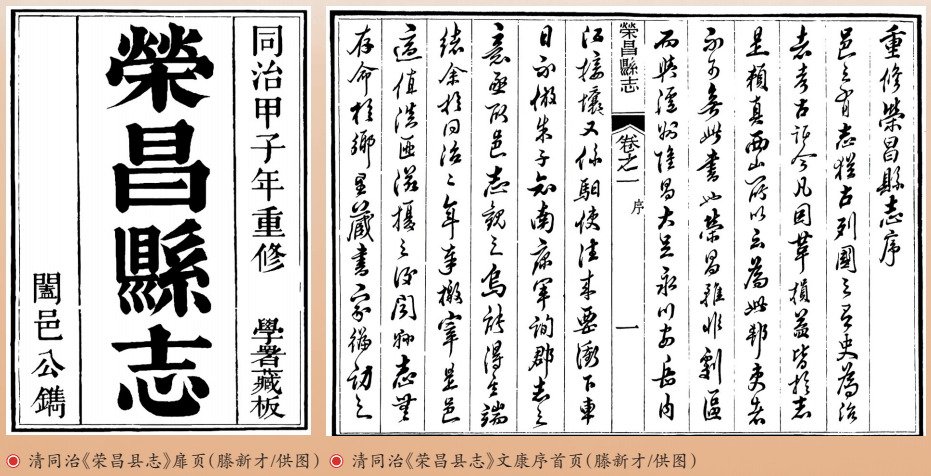 同治甲子年重修
學署藏板
榮昌縣志
闔邑公鐫
重修榮昌縣志序
邑之有志猶古列國之有史為治
者考古証今凡因革損益皆於志
是賴真西山所以云為此邦吏者
不可無此書也榮昌雖非劇區
而與瀘州隆昌大足永川安岳内
江接壤又係馹使往來要衝下車
榮昌縣志
卷之一
序
一
日不倣朱子知南康軍詢郡志之
意亟取邑志觀之烏能得其端
緒余於同治二年奉檄宰是邑
適值滇匪滋擾之後志無
存命於鄉里藏書家徧訪之
清同治《荣昌县志》扉页(滕新才/供图)
清同治《荣昌县志》文康序首页(滕新才/供图)